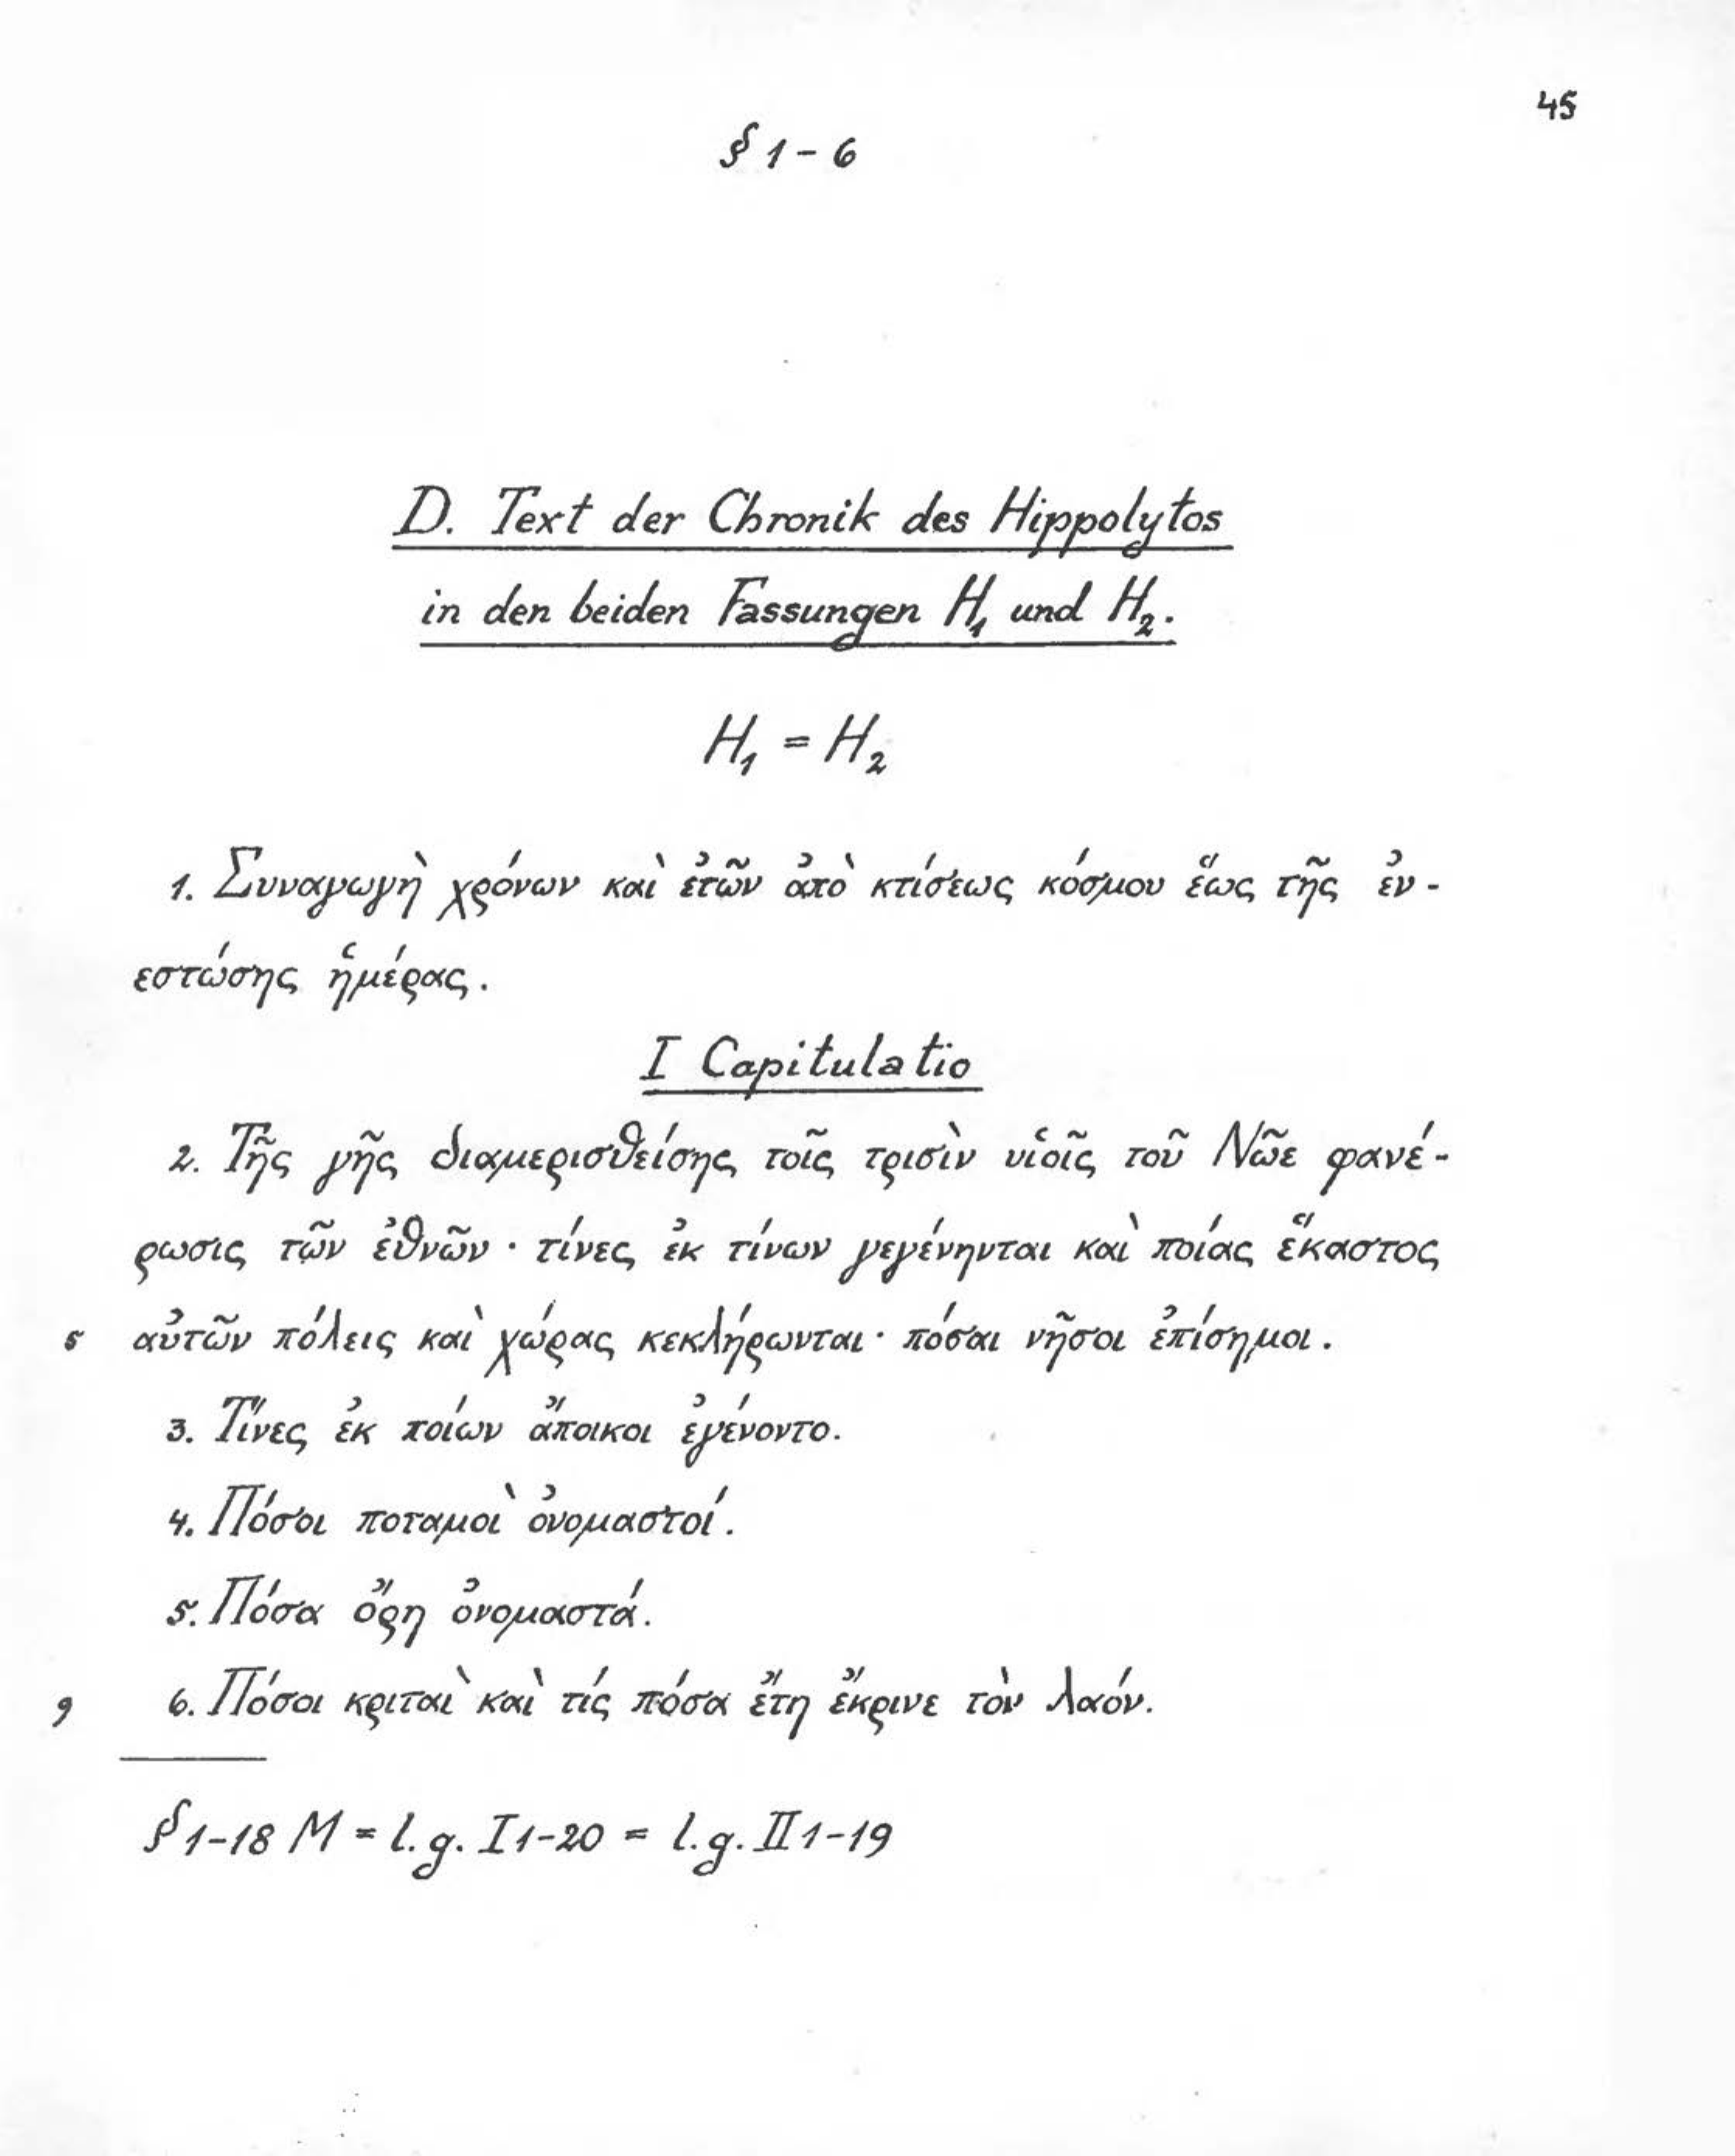 45
§ 1-6
D. Text der Chronik des Hippolytos
in den beiden Fassungen H₁ und H₂.
H₁ = H₂
1. Συναγωγὴ χρόνων καὶ ἐτῶν ἀπὸ κτίσεως κόσμου ἕως τῆς ἐν-
εστώσης ἡμέρας.
I Capitulatio
2. Τῆς γῆς διαμερισθείσης τοῖς τρισὶν υἱοῖς τοῦ Νῶε φανέ-
ρωσις τῶν ἐθνῶν · τίνες ἐκ τίνων γεγένηνται καὶ ποίας ἕκαστος
5 αὐτῶν πόλεις καὶ χώρας κεκλήρωνται · πόσαι νῆσοι ἐπίσημοι.
3. Τίνες ἐκ ποίων ἄποικοι ἐγένοντο.
4. Πόσοι ποταμοὶ ὀνομαστοί.
5. Πόσα ὄρη ὀνομαστά.
9 6. Πόσοι κριταὶ καὶ τίς πόσα ἔτη ἔκρινε τὸν λαόν.
§ 1-18 M = l.g. I 1-20 = l.g. II 1-19